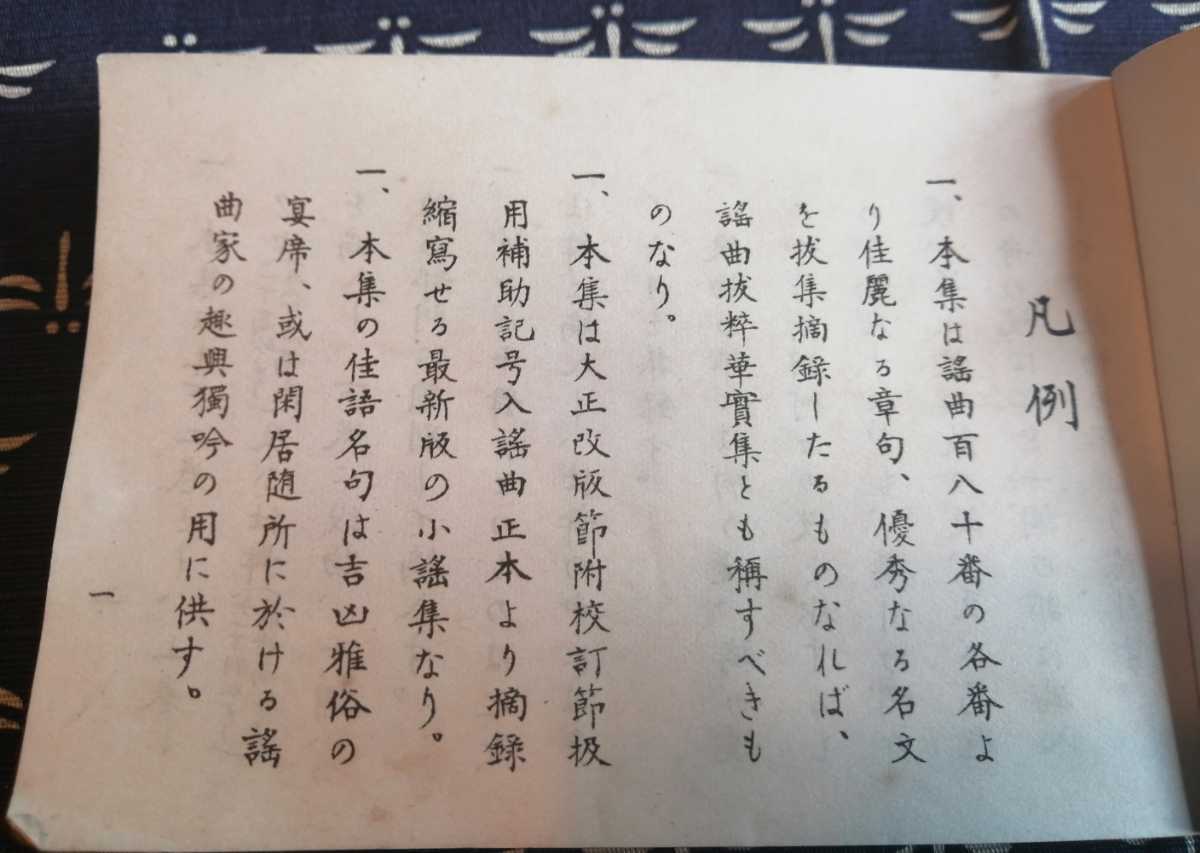 凡例
一、本集は謡曲百八十番の各番よ
り佳麗なる章句、優秀なる名文
を抜集摘録したるものなれば、
謡曲抜粹華實集とも稱すべきも
のなり。
一、本集は大正改版節附校訂節扱
用補助記号入謡曲正本より摘録
縮寫せる最新版の小謡集なり。
一、本集の佳語名句は吉凶雅俗の
宴席、或は閑居随所に於ける謡
曲家の趣興獨吟の用に供す。
一